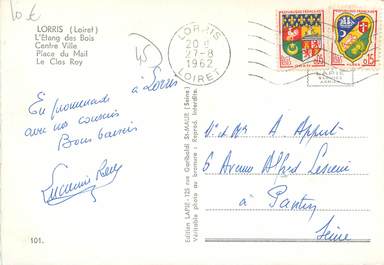 10 €
LORRIS (Loiret)
L'Etang des Bois
Centre Ville
Place du Mail
Le Clos Roy
45
LORRIS
27-8
1962
LOIRET
à Lorris
En promenade
avec nos cousins
Bons baisers
101.
Edition LAPIE - 125 rue Garibaldi St-MAUR (Seine)
Véritable photo au bromure : Reprod. Interdite.
LAPIE
M. et Mme A. Appert
5 Avenue Alfred Lesieur
à Pantin
Seine